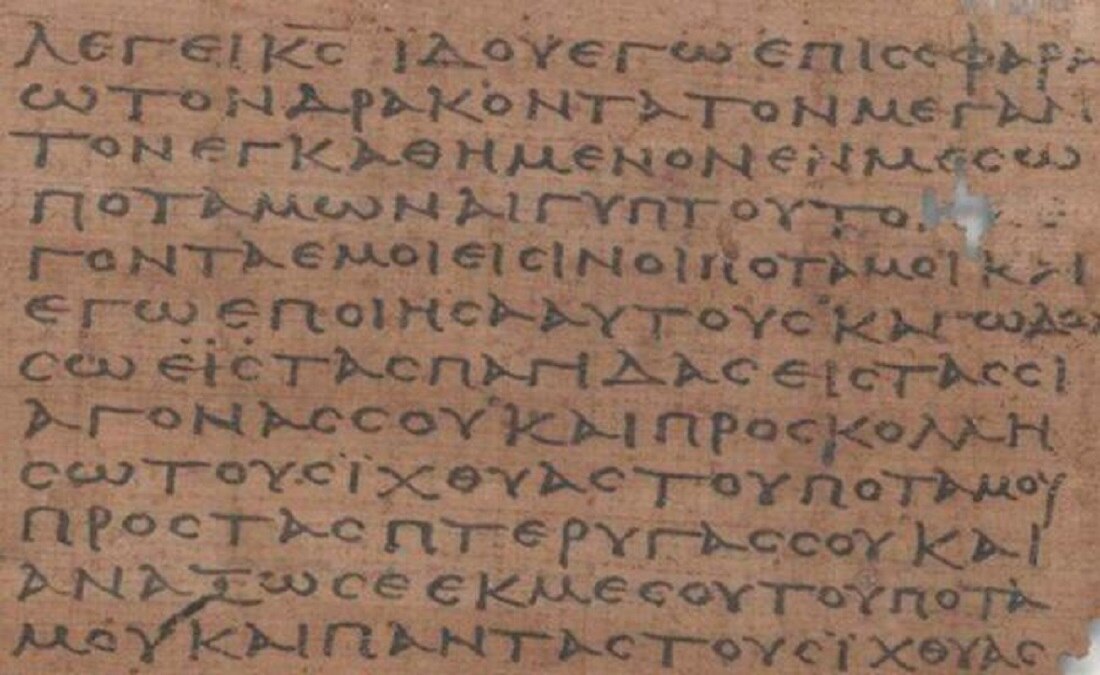 ΛΕΓΕΙΚ̅Ϲ̅ ΙΔΟΥΕΓΩΕΠΙϹΕΦΑΡΑ
ΩΤΟΝΔΡΑΚΟΝΤΑΤΟΝΜΕΓΑΝ
ΤΟΝΕΓΚΑΘΗΜΕΝΟΝΕΝΜΕϹΩ
ΠΟΤΑΜΩΝΑΙΓΥΠΤΟΥΤΟ
ΓΟΝΤΑΕΜΟΙΕΙϹΙΝΟΙΠΟΤΑΜΟΙΚΑΙ
ΕΓΩΕΠΟΙΗϹΑΑΥΤΟΥϹΚΑΓΩΔΩ
ϹΩΕΙϹΤΑϹΠΑΓΙΔΑϹΕΙϹΤΑϹϹΙ
ΑΓΟΝΑϹϹΟΥΚΑΙΠΡΟϹΚΟΛΛΗ
ϹΩΤΟΥϹΪΧΘΥΑϹΤΟΥΠΟΤΑΜΟΥ
ΠΡΟϹΤΑϹΠΤΕΡΥΓΑϹϹΟΥΚΑΙ
ΑΝΑΞΩϹΕΕΚΜΕϹΟΥΤΟΥΠΟΤΑ
ΜΟΥΚΑΙΠΑΝΤΑϹΤΟΥϹΪΧΘΥΑϹ